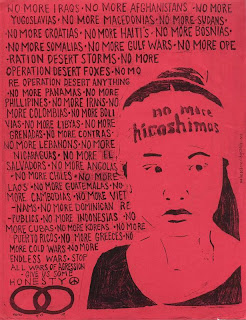 NO MORE IRAQS • NO MORE AFGHANISTANS • NO MORE
YUGOSLAVIAS • NO MORE MACEDONIAS • NO MORE SUDANS •
NO MORE CROATIAS • NO MORE HAITI'S • NO MORE BOSNIAS •
NO MORE SOMALIAS • NO MORE GULF WARS • NO MORE OPE
-RATION DESERT STORMS • NO MORE
OPERATION DESERT FOXES • NO MO
RE OPERATION DESERT ANYTHING
• NO MORE PANAMAS • NO MORE
PHILLIPINES • NO MORE IRANS • NO
MORE COLOMBIAS • NO MORE BOLI
VIAS • NO MORE LIBYAS • NO MORE
GRENADAS • NO MORE CONTRAS •
NO MORE LEBANONS • NO MORE
NICARAGUAS • NO MORE EL
SALVADORS • NO MORE ANGOLAS
• NO MORE CHILES • NO MORE
LAOS • NO MORE GUATEMALAS • NO
MORE CAMBODIAS • NO MORE VIET
-NAMS • NO MORE DOMINICAN RE
-PUBLICS • NO MORE INDONESIAS • NO
MORE CUBAS • NO MORE KOREAS • NO MORE
PUERTO RICOS • NO MORE GREECES • NO
MORE COLD WARS • NO MORE
ENDLESS WARS • STOP
ALL WARS OF AGRESSION
- GIVE US SOME
HONESTY
no more
hiroshimas